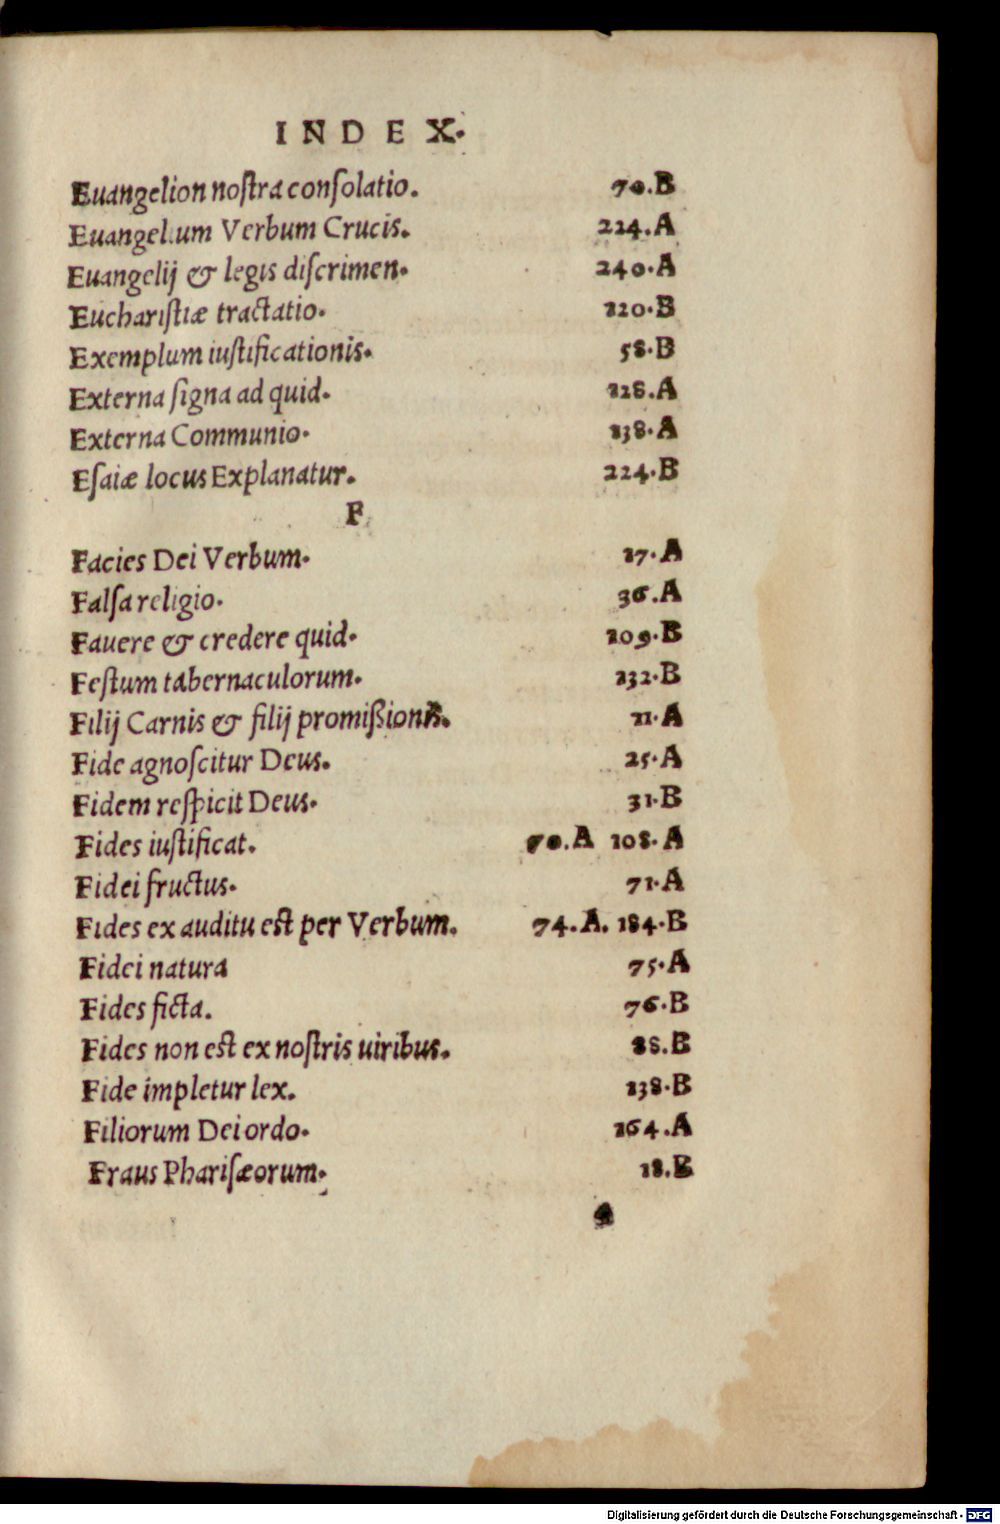 INDEX.
Euangelion noſtra conſolatio. 70.B
Euangelium Verbum Crucis. 224.A
Euangelij & legis diſcrimen. 240.A
Euchariſtiæ tractatio. 120.B
Exemplum iuſtificationis. 58.B
Externa ſigna ad quid. 128.A
Externa Communio. 138.A
Eſaiæ locus Explanatur. 224.B
F
Facies Dei Verbum. 17.A
Falſa religio. 36.A
Fauere & credere quid. 109.B
Feſtum tabernaculorum. 132.B
Filij Carnis & filij promiſsionis. 11.A
Fide agnoſcitur Deus. 25.A
Fidem reſpicit Deus. 31.B
Fides iuſtificat. 70.A 108.A
Fidei fructus. 71.A
Fides ex auditu eſt per Verbum. 74.A. 184.B
Fidei natura 75.A
Fides ficta. 76.B
Fides non eſt ex noſtris uiribus. 88.B
Fide impletur lex. 138.B
Filiorum Dei ordo. 164.A
Fraus Phariſæorum. 18.B
Digitalisierung gefördert durch die Deutsche Forschungsgemeinschaft - DFG